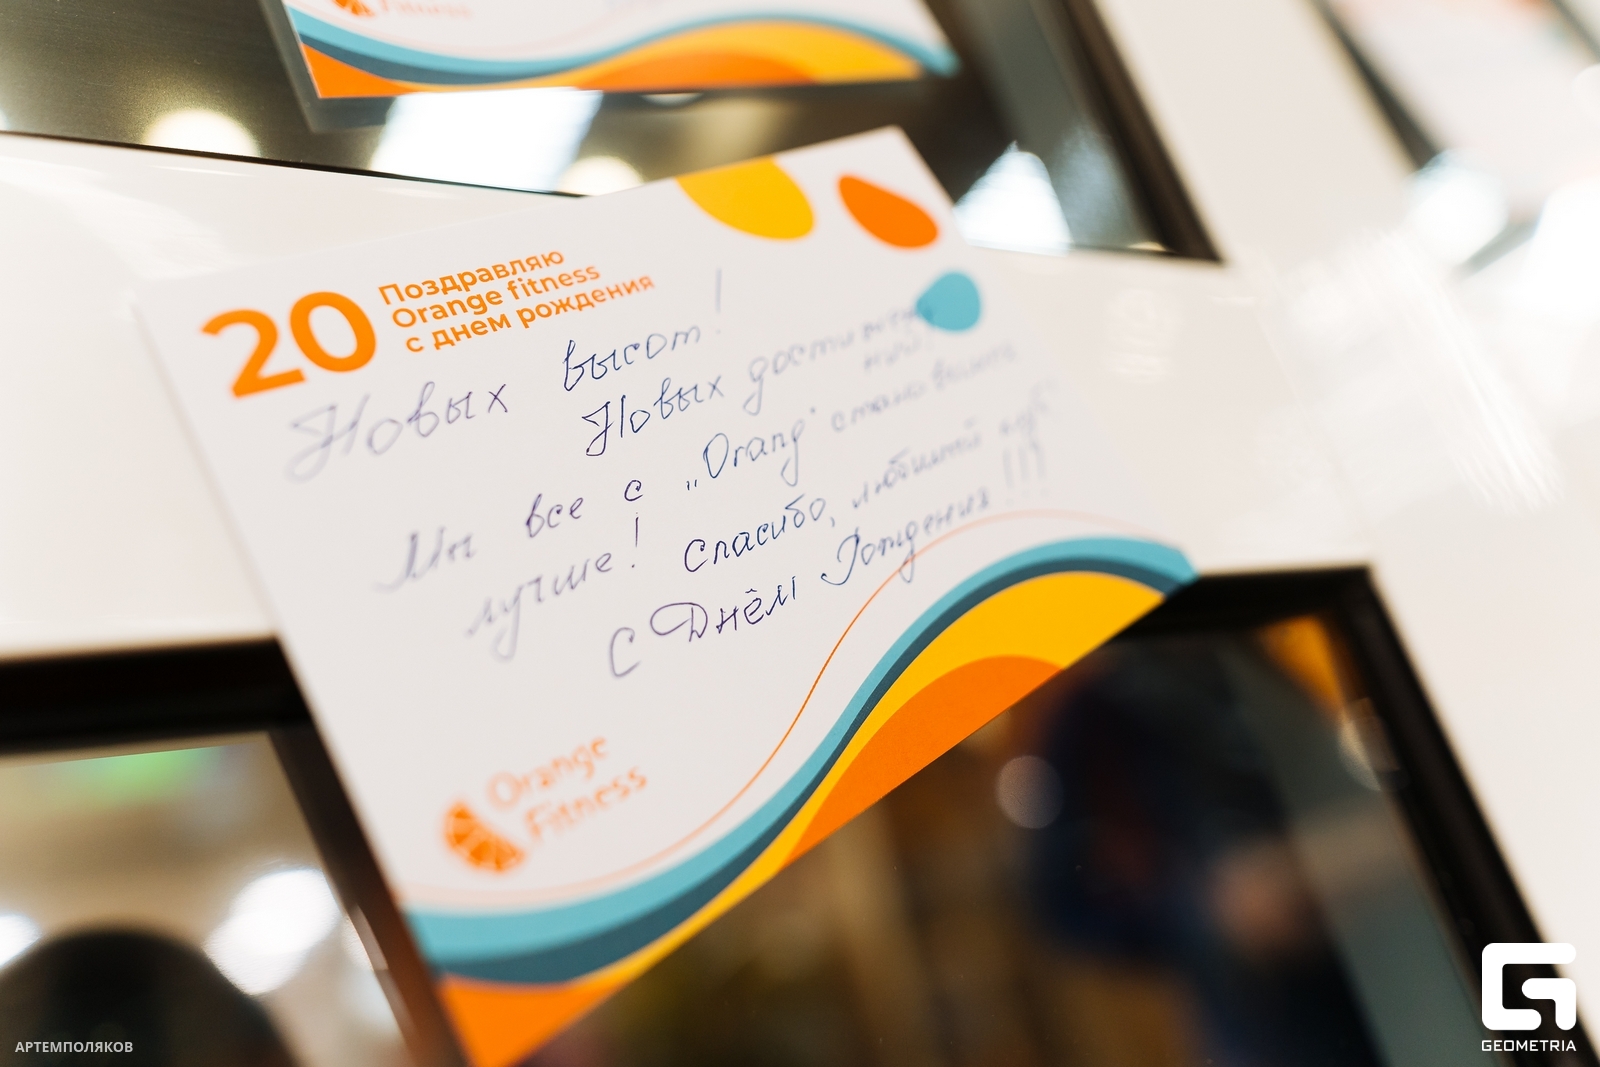 Fitness
20
Поздравляю
Orange fitness
с днем рождения
Новых высот!
Новых достиже
ний!
Мы все с „Orang" стали
лучше! Спасибо, любимый клуб!
С Днём Рождения!!!
Orange
Fitness
АРТЕМПОЛЯКОВ
GEOMETRIA